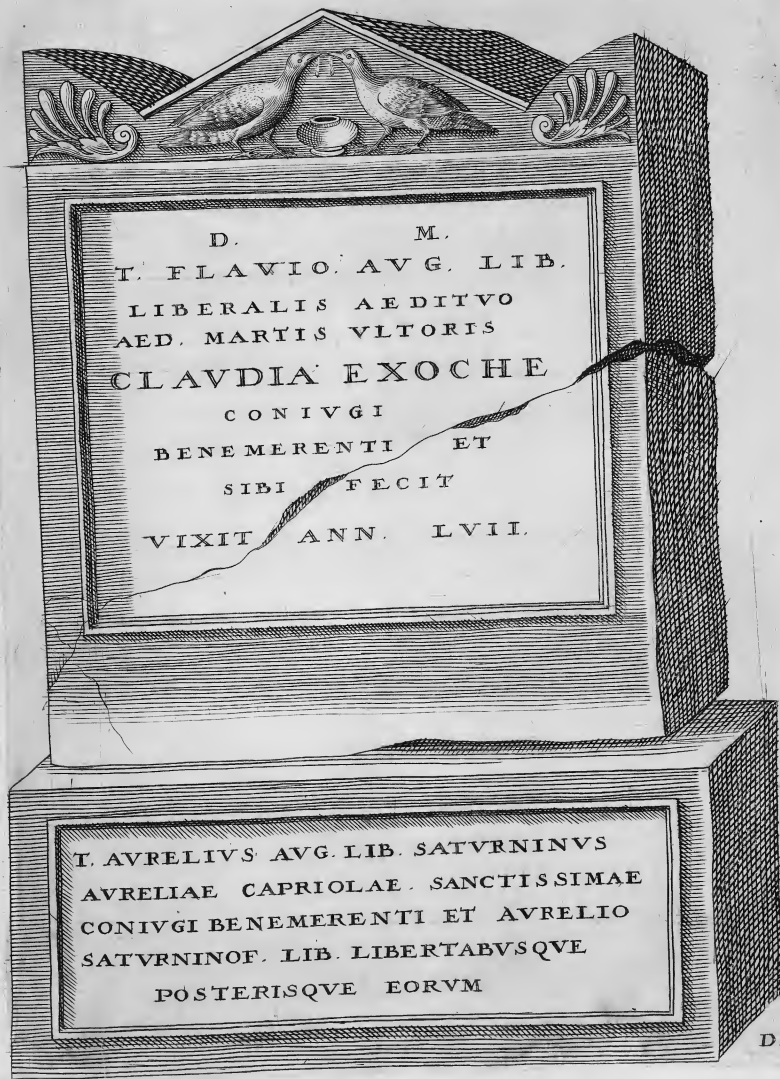 D. M.
T. FLAVIO. AVG. LIB.
LIBERALIS AEDITVO
AED. MARTIS VLTORIS
CLAVDIA EXOCHE
CONIVGI
BENEMERENTI ET
SIBI FECIT
VIXIT ANN. LVII.
T. AVRELIVS AVG. LIB. SATVRNINVS
AVRELIAE CAPRIOLAE. SANCTISSIMAE
CONIVGI BENEMERENTI ET AVRELIO
SATVRNINOF. LIB. LIBERTABVSQVE
POSTERISQVE EORVM
D